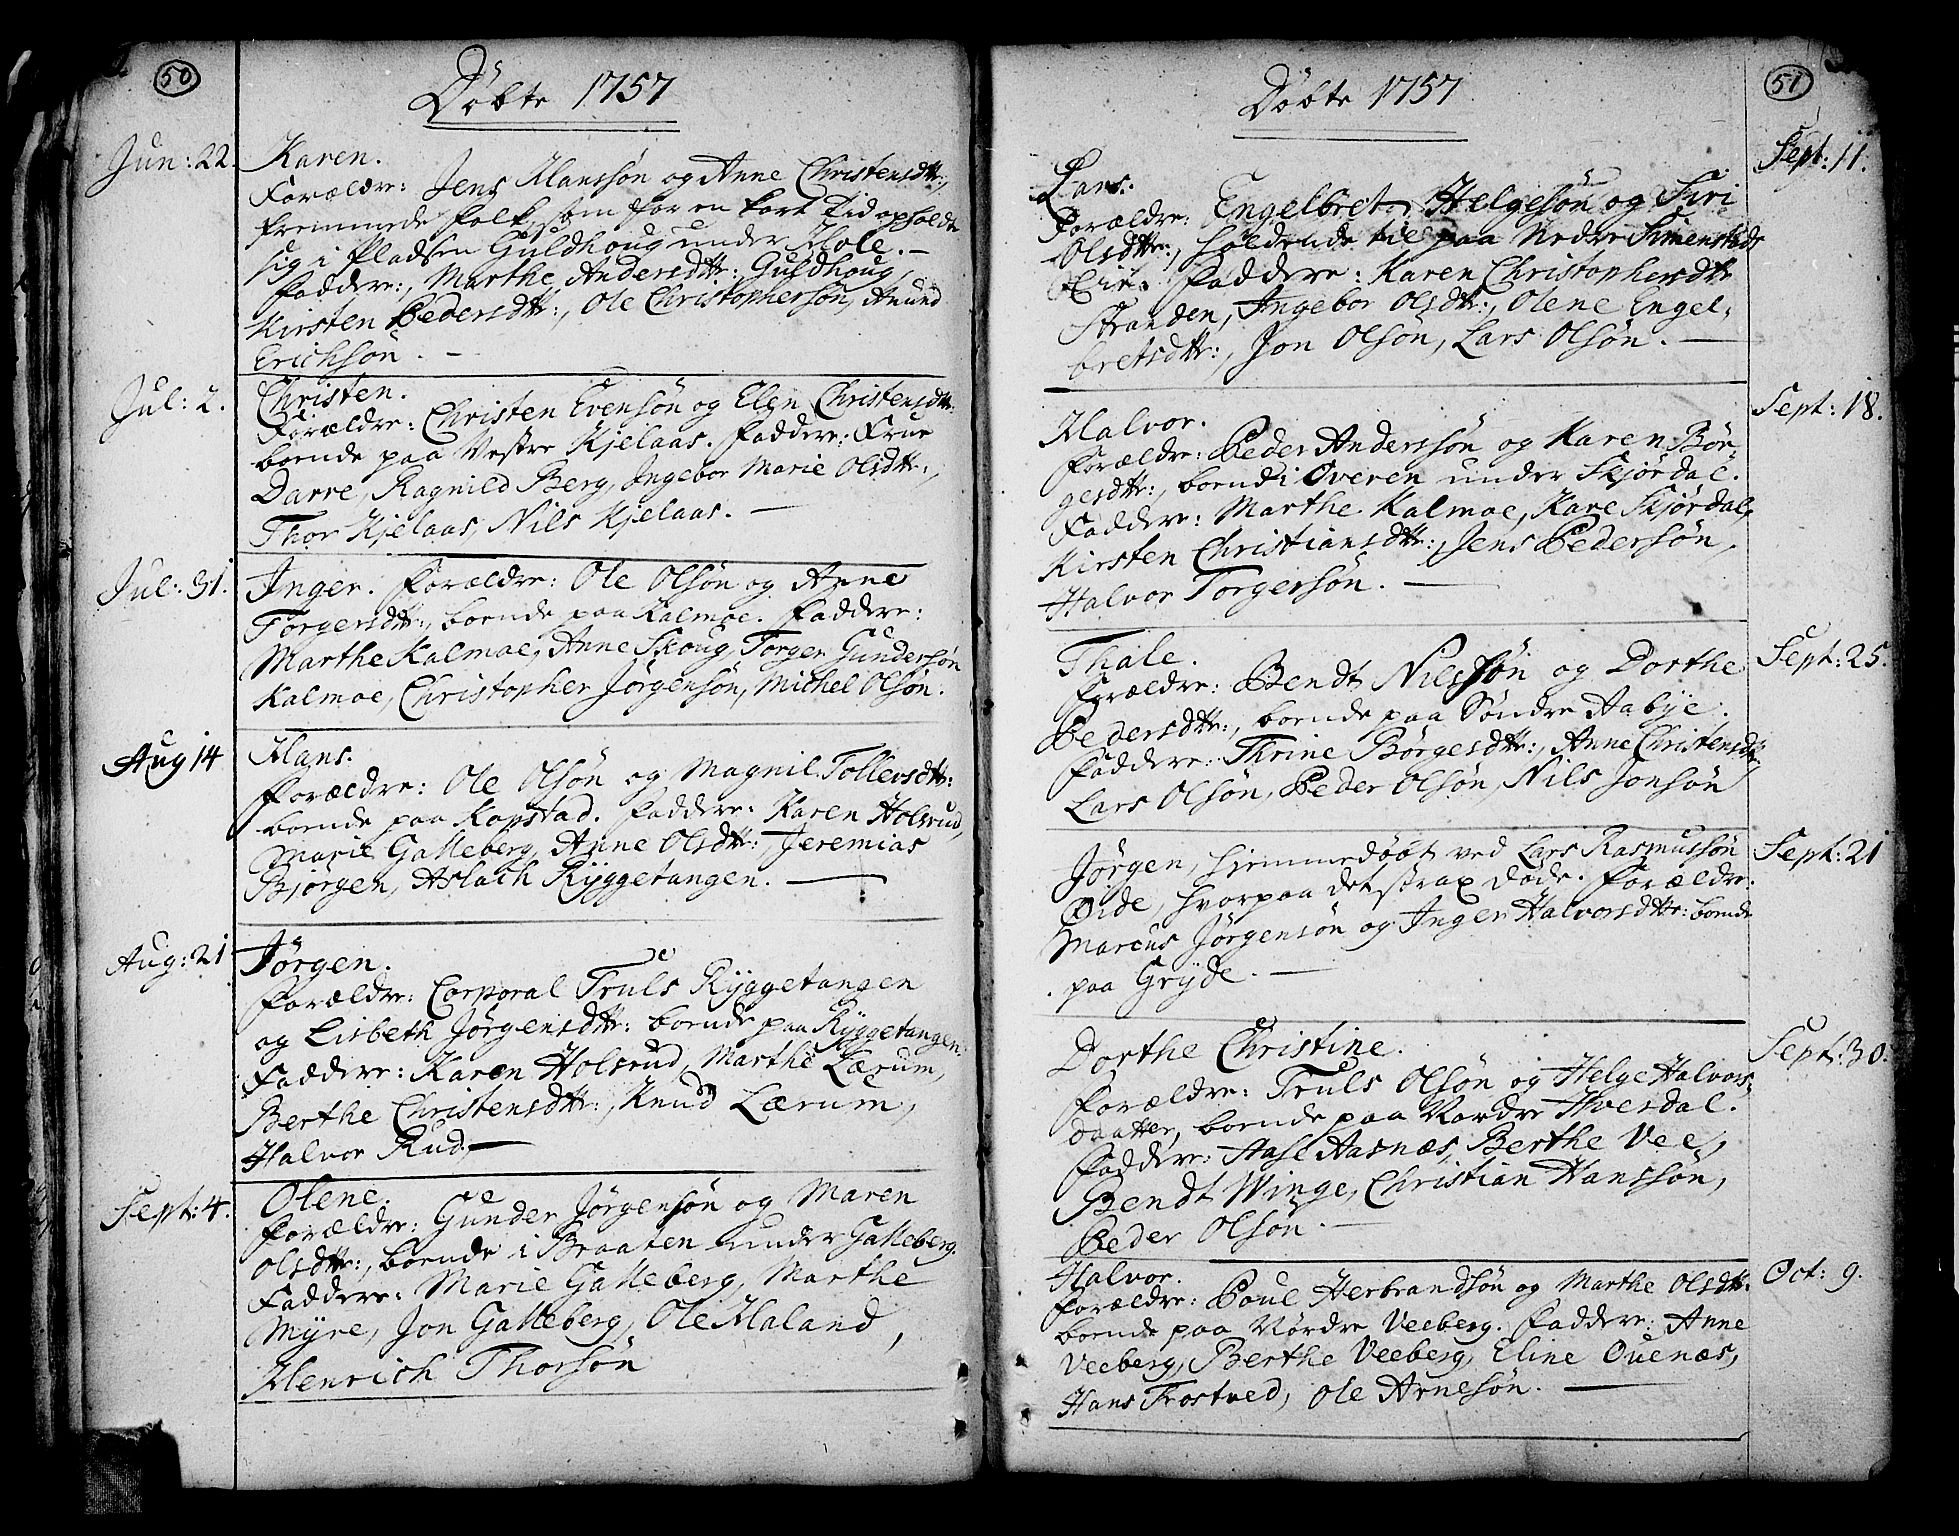 50
Döbte 1757
Jun: 22.
Karen.
Forældre: Jens Hanssön og Anne Christensdttr:,
fremmede folk, som for en kort Tid opholdt
sig i Pladsen Guldhoug under Hole. –
Faddere:, Marthe Andersdttr: Guldhoug,
Kirsten Pedersdttr:, Ole Christophersön, Anund
Erichsön. –
Jul: 2.
Christen.
Forældre: Christen Evensön og Elen Christensdttr:
boende paa Vestre Kjelaas. Faddere: Frue
Darre, Ragnild Berg, Ingebor Marie Olsdttr:,
Thor Kjelaas, Nils Kjelaas. –
Jul: 31.
Inger. Forældre: Ole Olsön og Anne
Torgersdttr:, boende paa Kalmoe. Faddere:
Marthe Kalmoe, Anne Skoug, Torger Gundersön
Kalmoe, Christopher Jörgensön, Michel Olsön.
Aug 14
Hans.
Forældre: Ole Olsön og Magnil Tollevsdttr:
boende paa Kopstad. Faddere: Karen Holsrud,
Marie Galleberg, Anne Olsdttr:, Jeremias
Bjørgen, Aslach Ryggetangen. –
Aug: 21
Jörgen.
Forældre: Corporal Truls Ryggetangen
og Lisbeth Jörgensdttr: boende paa Ryggetangen.
Faddere: Karen Holsrud, Marthe Lærum,
Berthe Christensdttr:, Knud Lærum,
Halvor Rud. –
Sept: 4.
Olene.
Forældre: Gunder Jörgensön og Maren
Olsdttr:, boende i Braaten under Galleberg.
Faddere: Marie Galleberg, Marthe
Myre, Jon Galleberg, Ole Haland,
Henrich Thorsön
51
Döbte 1757
Sept: 11.
Lars.
Forældre: Engelbret Helgesön og Siri
Olsdttr:, holdende til paa Nedre Simenstad
Eie. Faddere: Karen Christophersdttr
Stranden, Ingebor Olsdttr:, Olene Engel-
bretsdttr:, Jon Olsön, Lars Olsön. –
Sept: 18.
Halvor.
Forældre: Peder Anderssön og Karen Bör-
gesdttr:, boend i Överen under Skjördal.
Faddere: Marthe Kalmoe, Kare Skjördal,
Kirsten Christiansdttr:, Jens Pedersön,
Halvor Torgersön. –
Sept: 25.
Thale.
Forældre: Bendt Nilssön og Dorthe
Pedersdttr:, boende paa Söndre Aabye.
Faddere: Thrine Börgesdttr:, Anne Christensdttr,
Lars Olsön, Peder Olsön, Nils Jonsön
Sept: 21
Jörgen, hjemmedöbt ved Lars Rasmussön
Öide, hvorpaa det strax döde. Forældre:
Marcus Jörgensön og Inger Halvorsdttr: boende
paa Gryde. –
Sept: 30.
Dorthe Christine.
Forældre: Truls Olsön og Helge Halvors-
daatter, boende paa Nordre Hvesdal.
Faddere: Aase Aasnæs, Berthe Vee,
Bendt Winge, Christian Hanssön,
Peder Olsön. –
Oct: 9.
Halvor.
Forældre: Poul Herbrandsön og Marthe Olsdttr:
boende paa Nordre Veeberg. Faddere: Anne
Veeberg, Berthe Veeberg, Eline Ouenæs,
Hans Trostved, Ole Arnesön. –